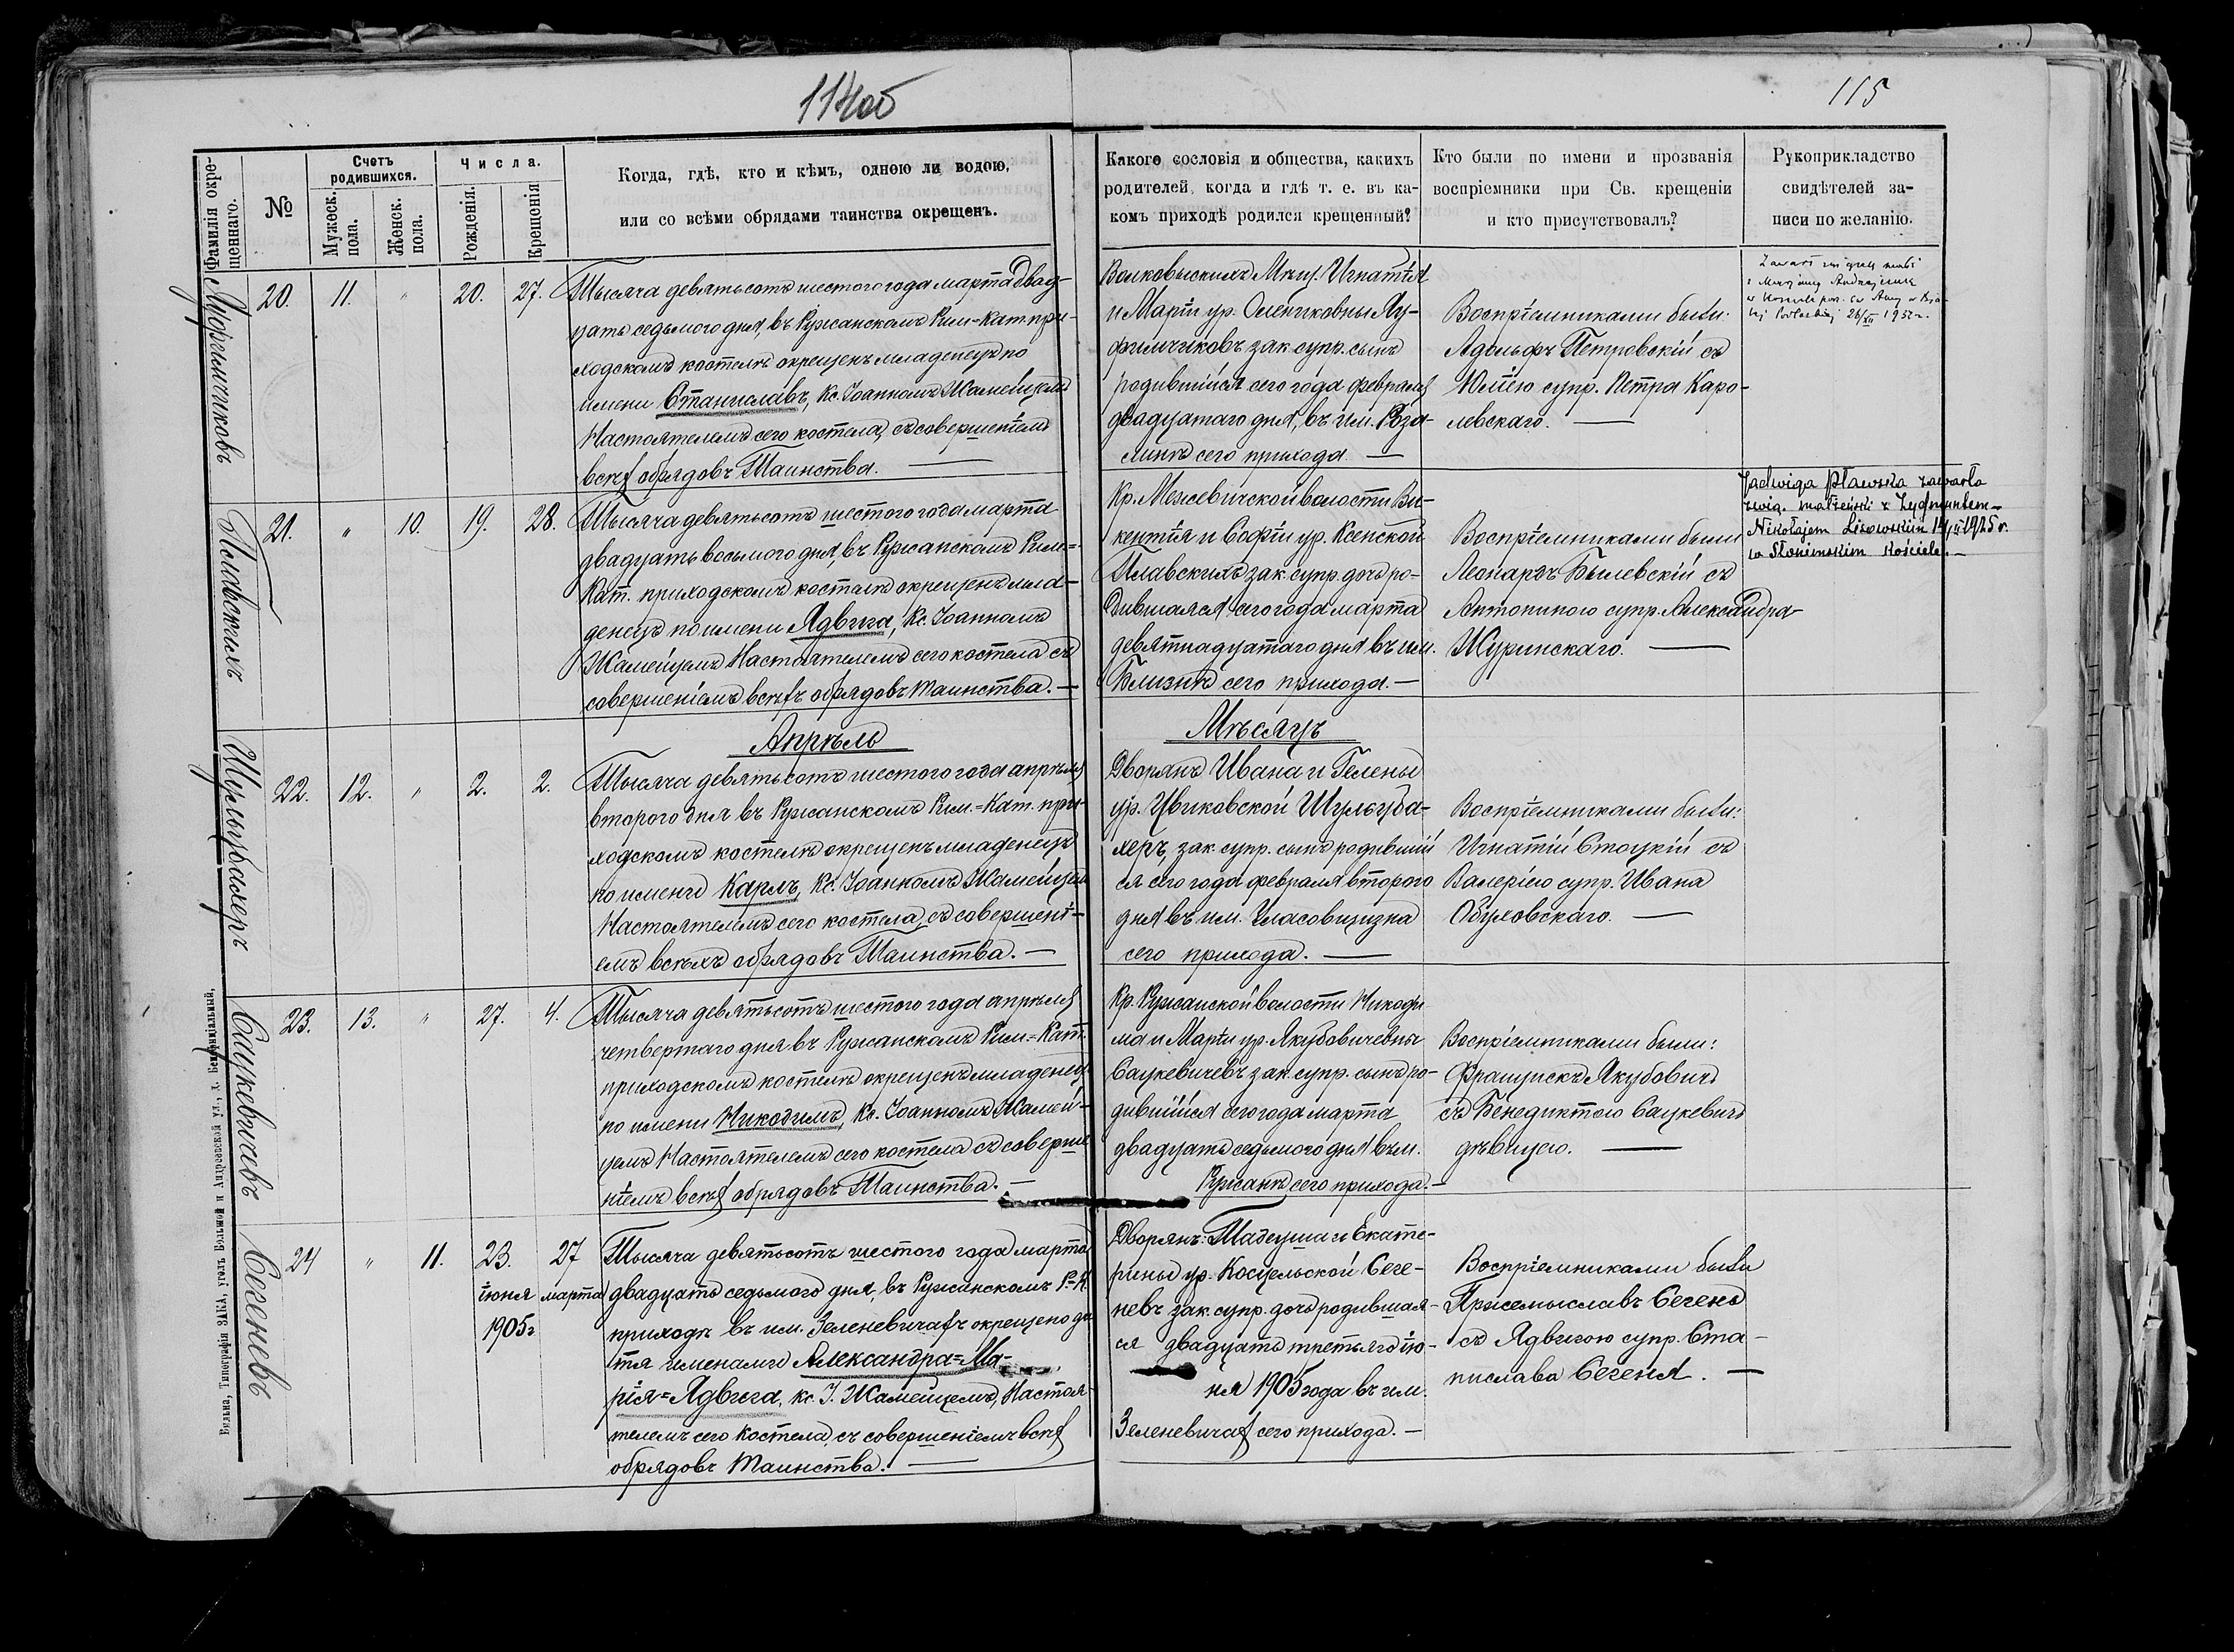 114об
115
Фамилія окре-
щеннаго.
№
Счетъ
родившихся.
Мужеск.
пола.
Женск.
пола.
Числа.
Рожденія.
Крещенія
Когда, гдѣ, кто и кѣмъ, одною ли водою,
или со всѣми обрядами таинства окрещенъ.
Какого сословія и общества, какихъ
родителей, когда и гдѣ т. е. въ ка-
комъ приходѣ родился крещенный?
Кто были по имени и прозванія
воспріемники при Св. крещеніи
и кто присутствовалъ?
Рукоприкладство
свидѣтелей за-
писи по желанію.
20. 11. " 20. 27.
Тысяча девятьсотъ шестого года марта двад-
цать седьмого дня, въ Ружанскомъ Рим=Кат. при-
ходскомъ костелѣ окрещенъ младенецъ по
имени Станиславъ, Кс. Іоанномъ Жамейцемъ
Настоятелемъ сего костела, съ совершеніемъ
всѣхъ обрядовъ Таинства. —
Волковыскихъ Мѣщ. Игнатія
и Маріи ур. Олениковны
зак. супр. сынъ
родившійся сего года февраля
двадцатаго дня, въ им.
сего прихода. —
Воспріемниками были:
Адольфъ Петровскій съ
Юліею супр. Петра Каро-
левскаго. —
26/XII 195
Плавскихъ
21. " 10. 19. 28.
Тысяча девятьсотъ шестого года марта
двадцать восьмого дня, въ Ружанскомъ Рим=
Кат. приходскомъ костелѣ окрещенъ мла-
денецъ по имени Ядвига, Кс. Іоанномъ
Жамейцемъ Настоятелемъ сего костела съ
совершеніемъ всѣхъ обрядовъ таинства. —
Кр. Межевичской волости Ви-
кентія и Софіи ур. Ксенской
Плавскихъ зак. супр. дочь ро-
дившаяся сего года марта
девятнадцатаго дня въ им.
Близнѣ сего прихода. —
Воспріемниками были
Леонардъ Былевскій съ
Антониною супр. Александра
Журинскаго. —
Jadwiga Pławska zawarła
związ. małżeński z Zygmuntem-
Nikołajem Lisowskim 14/II 1925 r.
w Słonimskim kościele. —
Апрѣль
Мѣсяцъ
Шульцбахеръ
22. 12. " 2. 2.
Тысяча девятьсотъ шестого года апрѣля
второго дня въ Ружанскомъ Рим.=Кат. при-
ходскомъ костелѣ окрещенъ младенецъ
по имени Карлъ, Кс. Іоанномъ Жамейцемъ
Настоятелемъ сего костела, съ совершені-
емъ всѣхъ обрядовъ Таинства. —
Дворянъ Ивана и Гелены
ур. Цвиковской Шульцба-
херъ, зак. супр. сынъ родившій
ся сего года февраля второго
дня въ им. Власовщизна
сего прихода. —
Воспріемниками были:
Игнатій Стоцкій съ
Валеріею супр. Ивана
Обуховскаго. —
Сацкевичевъ
23. 13. " 27. 4.
Тысяча девятьсотъ шестого года апрѣля
четвертаго дня въ Ружанскомъ Рим.=Кат.
приходскомъ костелѣ окрещенъ младенецъ
по имени Никодимъ, Кс. Іоанномъ Жамей-
цемъ Настоятелемъ сего костела съ соверше
ніемъ всѣхъ обрядовъ Таинства. —
Кр. Ружанской волости Никоди
ма и Маріи ур. Якубовичевны
Сацкевичевъ зак. супр. сынъ ро-
дившійся сего года марта
двадцать седьмого дня въ м.
Ружанѣ сего прихода. —
Воспріемниками были:
Францискъ Якубовичъ
съ Бенедиктою Сацкевичъ
дѣвицею. —
Сегеневъ
24 " 11. 23. 27
іюня марта
1905г
Тысяча девятьсотъ шестого года марта
двадцать седьмого дня, въ Ружанскомъ Р.=К.
приходѣ въ им. Зеленевичахъ окрещено ди
тя именами Александра=Ма-
рія=Ядвига, кс. І. Жамейцемъ, Настоя-
телемъ сего костела, съ совершеніемъ всѣхъ
обрядовъ таинства. —
Дворянъ: Тадеуша и Екате-
рины ур. Косцельской Сеге-
невъ зак. супр. дочь родившая-
ся двадцать третьяго ію-
ня 1905 года въ им.
Зеленевичахъ сего прихода. —
Воспріемниками были
Пржемыславъ Сегень
съ Ядвигою супр. Ста-
нислава Сегеня. —
Вильна, Типографія ЗАКА, уголъ Большой и Андреевской ул., д.